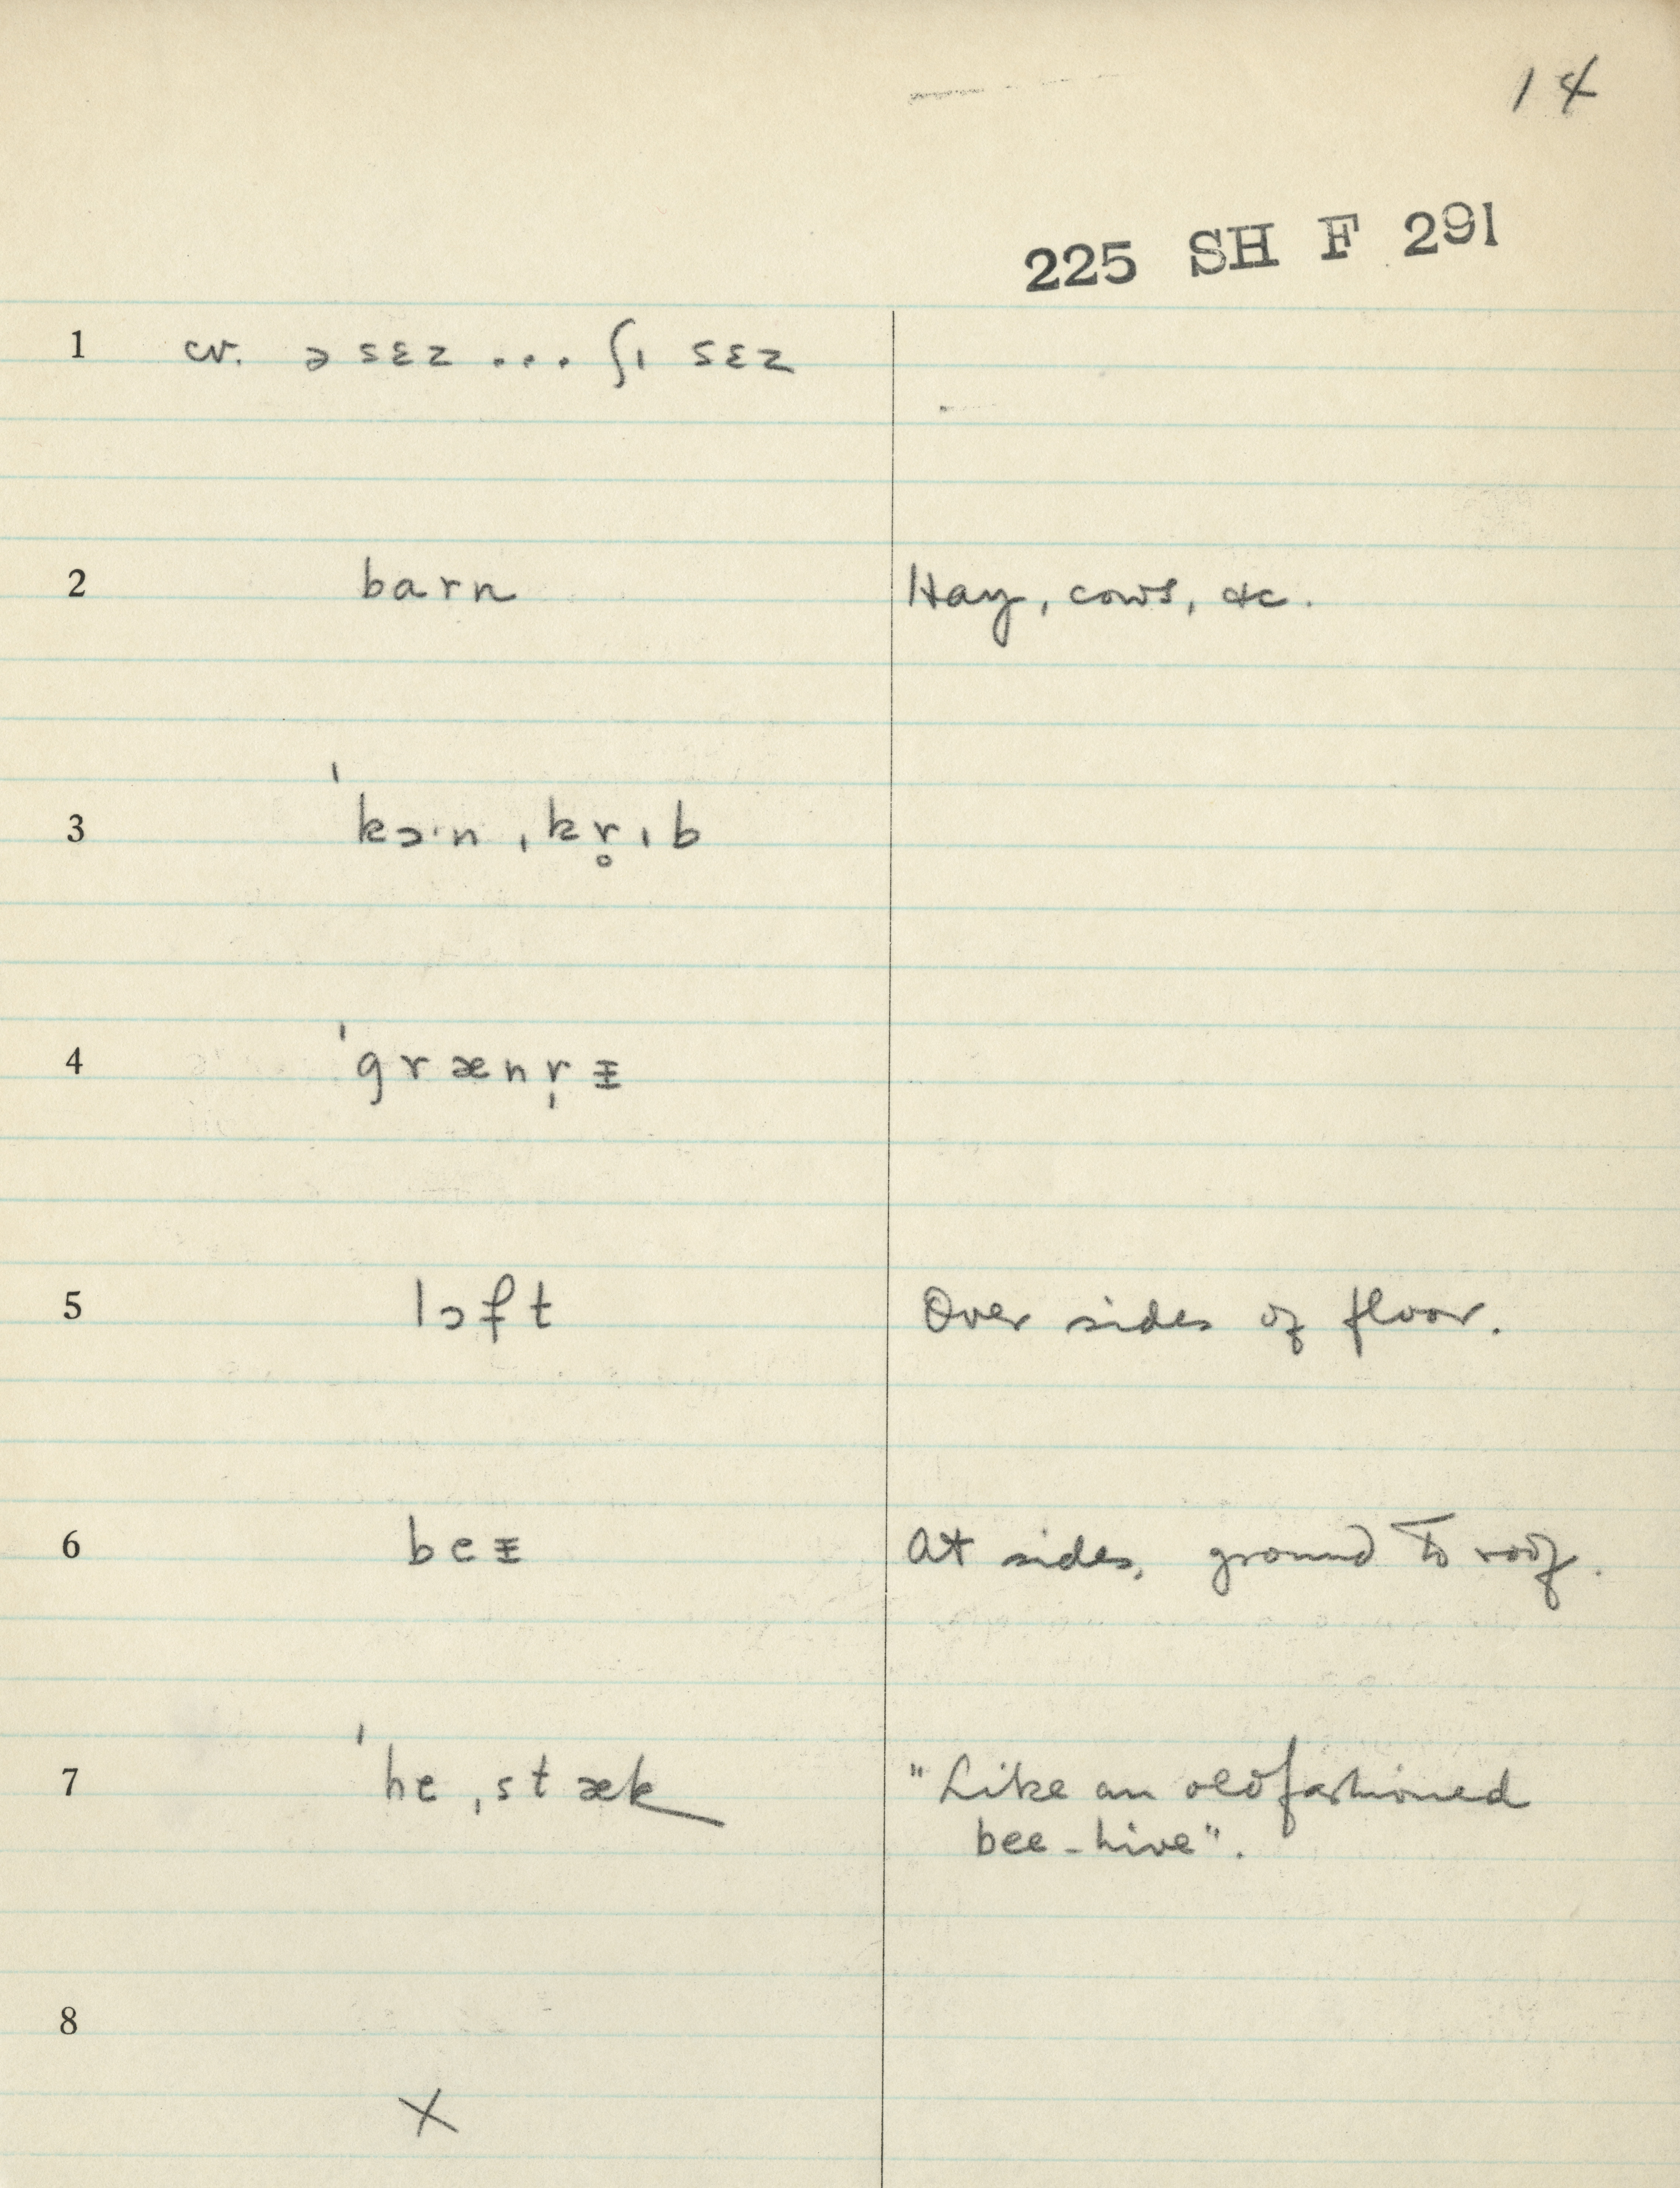 14
225 SH F 291
1 cv. ə sɛz ... ʃɪ sɛz
2 barn Hay, cows, &c.
3 ˈkɔ·n ˌkr̥ɪb
4 ˈgrænr̩ᵻ
5 lɔft Over sides of floor.
6 beᵻ At sides, ground to roof.
7 ˈhe ˌstæk "Like an oldfashioned
bee-hive".
8
X